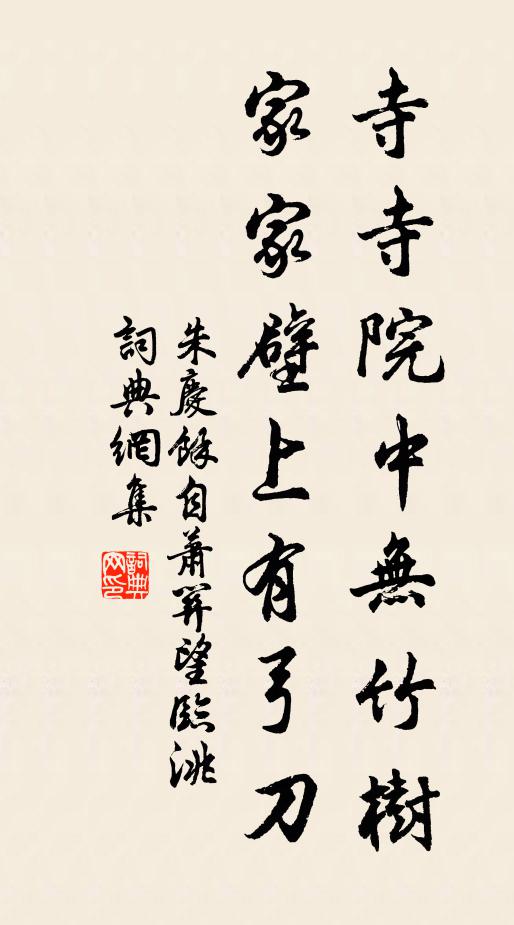 寺寺院中無竹樹
家家壁上有弓刀
朱慶餘自蕭關望臨洮
詞典網集
詞典網印